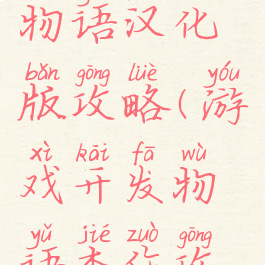 物语汉化
bǎn gōng lüè yóu
版攻略(游
xì kāi fā wù
戏开发物
yǔ jié zuò gōng
语杰作攻